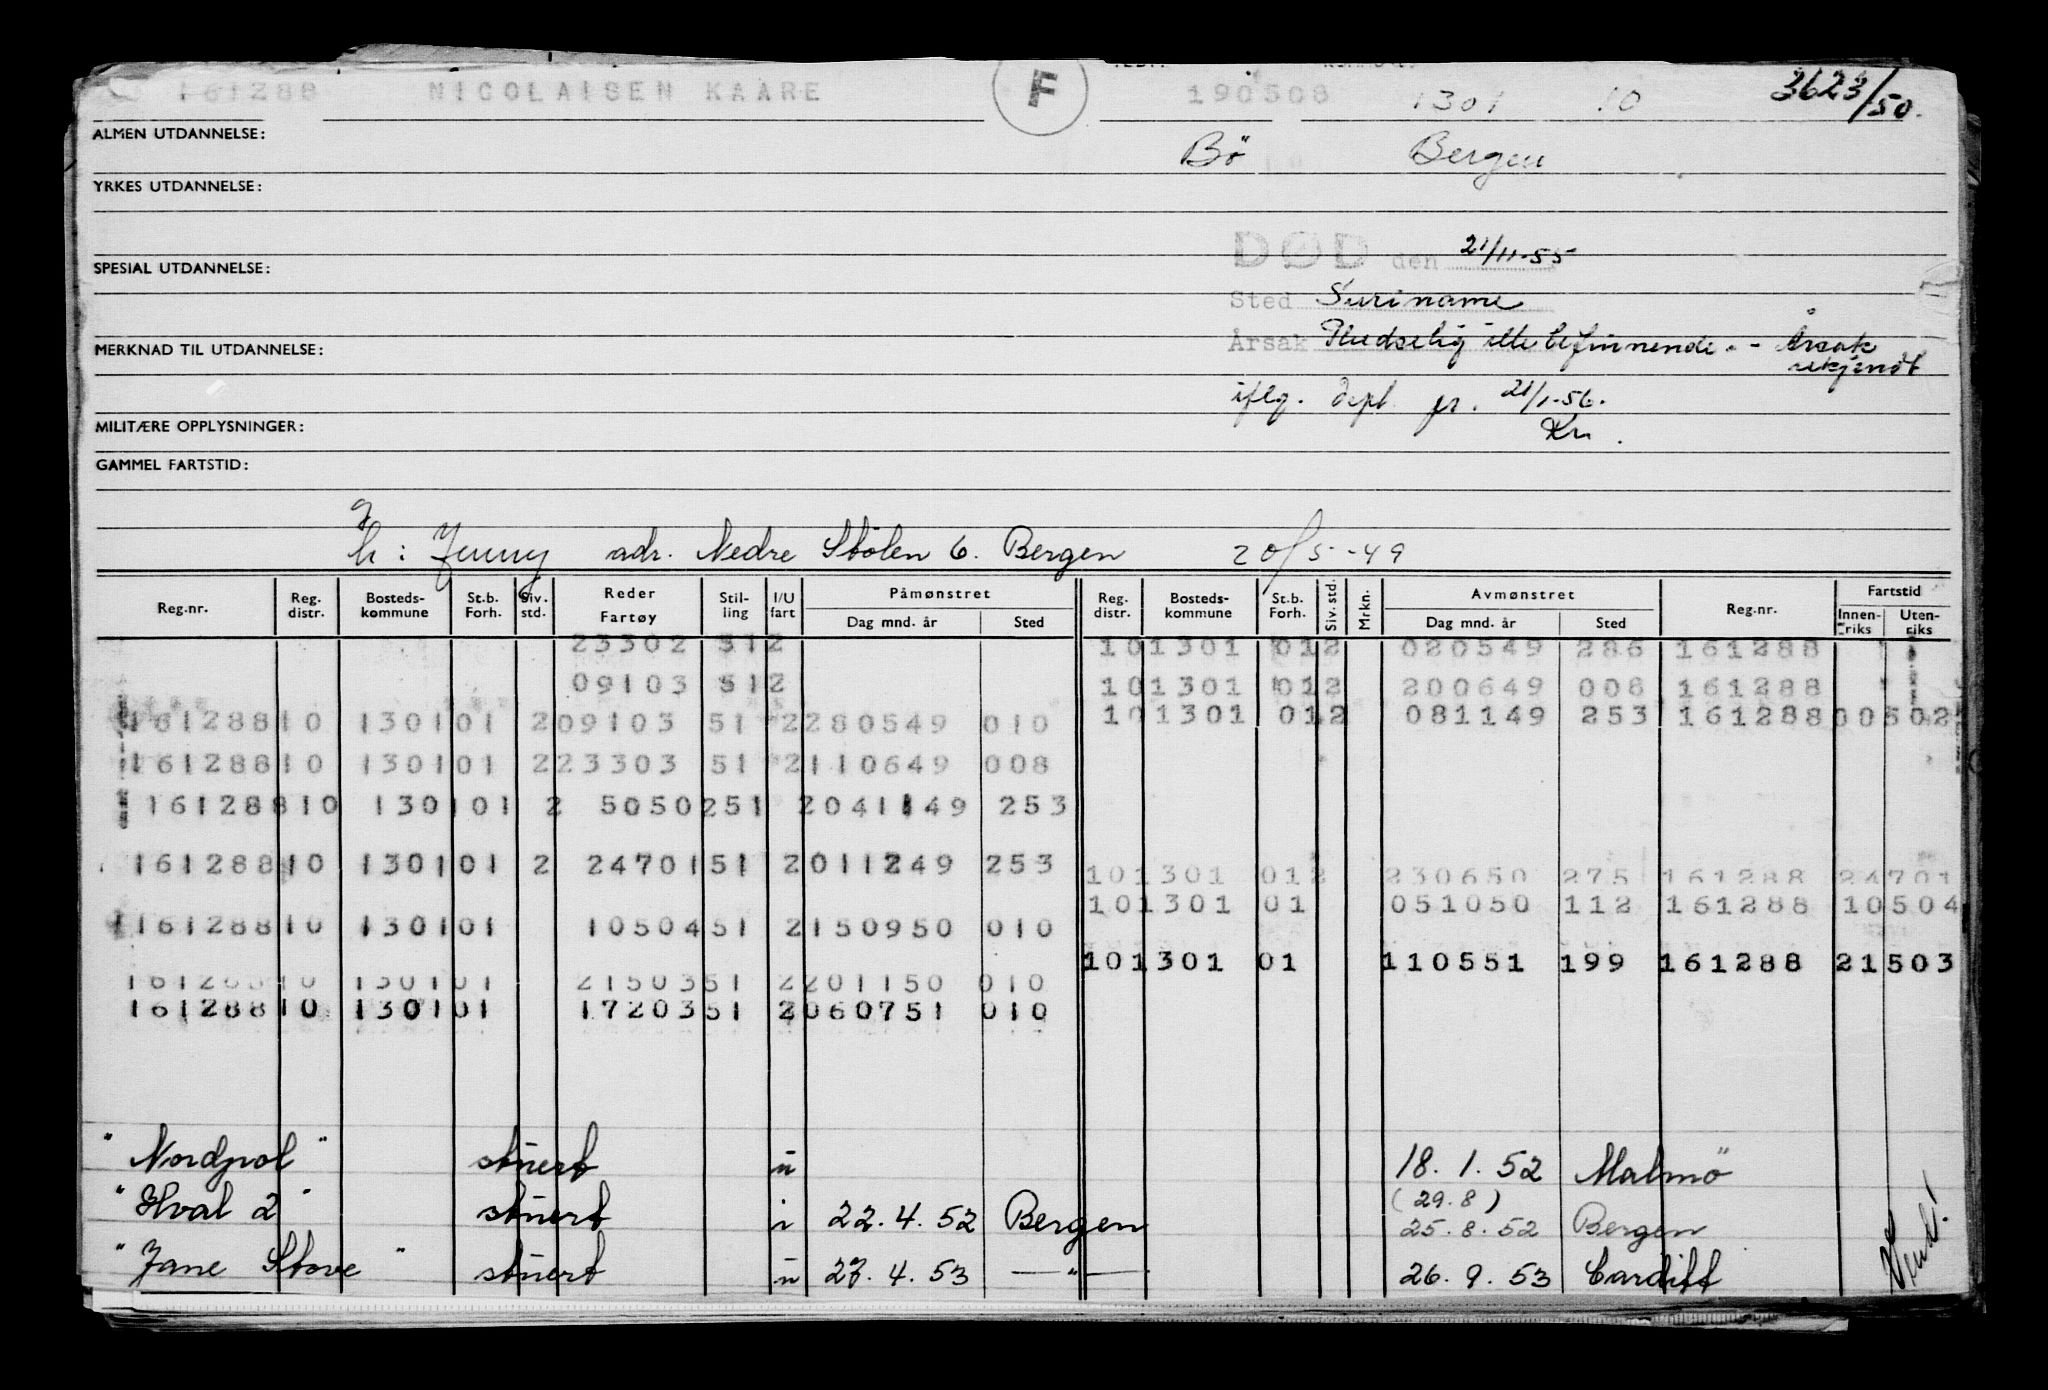 161288 NICOLAISEN KAARE F 190508 1301 10 3623/50.
ALMEN UTDANNELSE: Bö Bergen
YRKES UTDANNELSE:
DØD den 21/11-55
SPESIAL UTDANNELSE:
Sted Suriname
Årsak Pludselig ille befinnende. - Årsak
MERKNAD TIL UTDANNELSE: ukjendt
iflg. dept. 21/1-56.
MILITÆRE OPPLYSNINGER:
GAMMEL FARTSTID:
g
h: Jenny adr. Nedre Stölen 6. Bergen 20/5-49
Reg.nr. Reg. distr. Bosteds-kommune St.b. Forh. Siv. std. Reder Fartøy Stil-ling I/U fart Påmønstret Dag mnd. år Sted Reg. distr. Bosteds-kommune St.b. Forh. Siv. std. Mrkn. Avmønstret Dag mnd. år Sted Reg.nr. Fartstid Innen-riks Uten-riks
23302 512 101301 012 020549 286 161288
09103 512 101301 012 200649 008 161288
16128810 130101 209103 51 2280549 010 101301 012 081149 253 161288 00502
16128810 130101 223303 51 2110649 008
16128810 130101 2 5050251 2041149 253
16128810 130101 2 2470151 2011249 253 101301 012 230650 275 161288 24701
101301 01 051050 112 161288 10504
16128810 130101 1050451 2150950 010
101301 01 110551 199 161288 21503
16128810 130101 2150351 2201150 010
16128810 130101 1720351 2060751 010
"Nordpol" stüert ü 18.1.52 Malmö
"Hval 2" stüert i 22.4.52 Bergen (29.8) 25.8.52 Bergen
"Jane Stove" stüert ü 27.4.53 —"— 26.9.53 Cardiff
Vend!